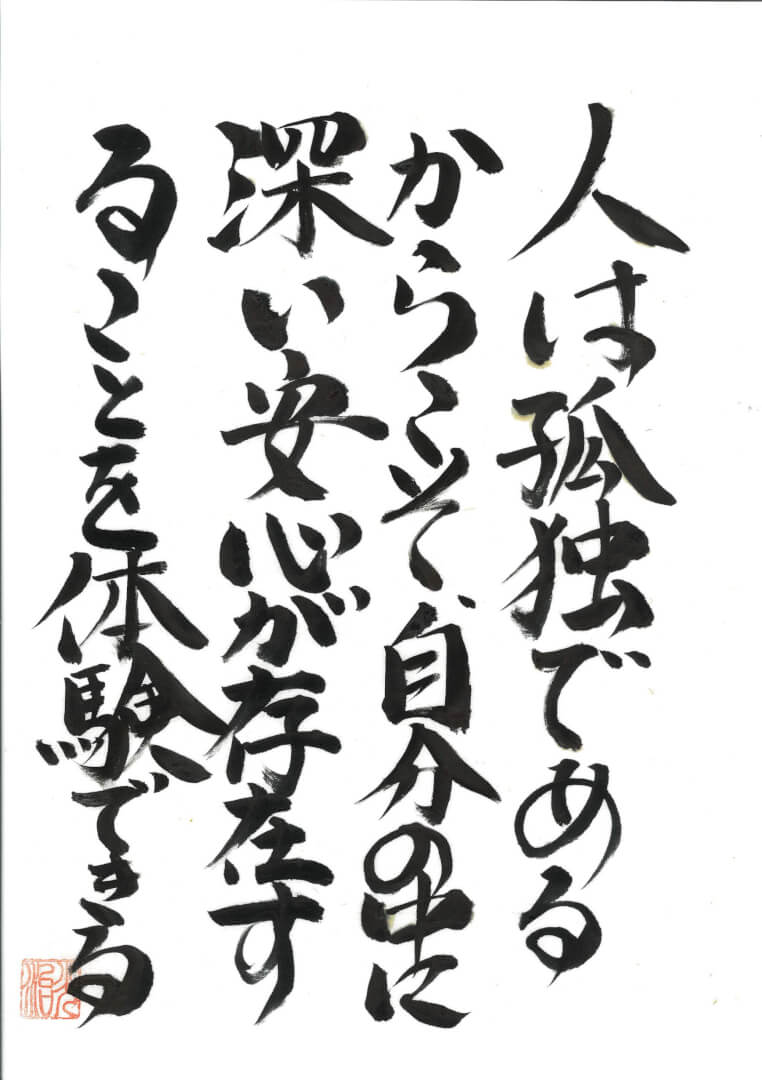 人は孤独である
からこそ、自分の中に
深い安心が存在す
ることを体験できる